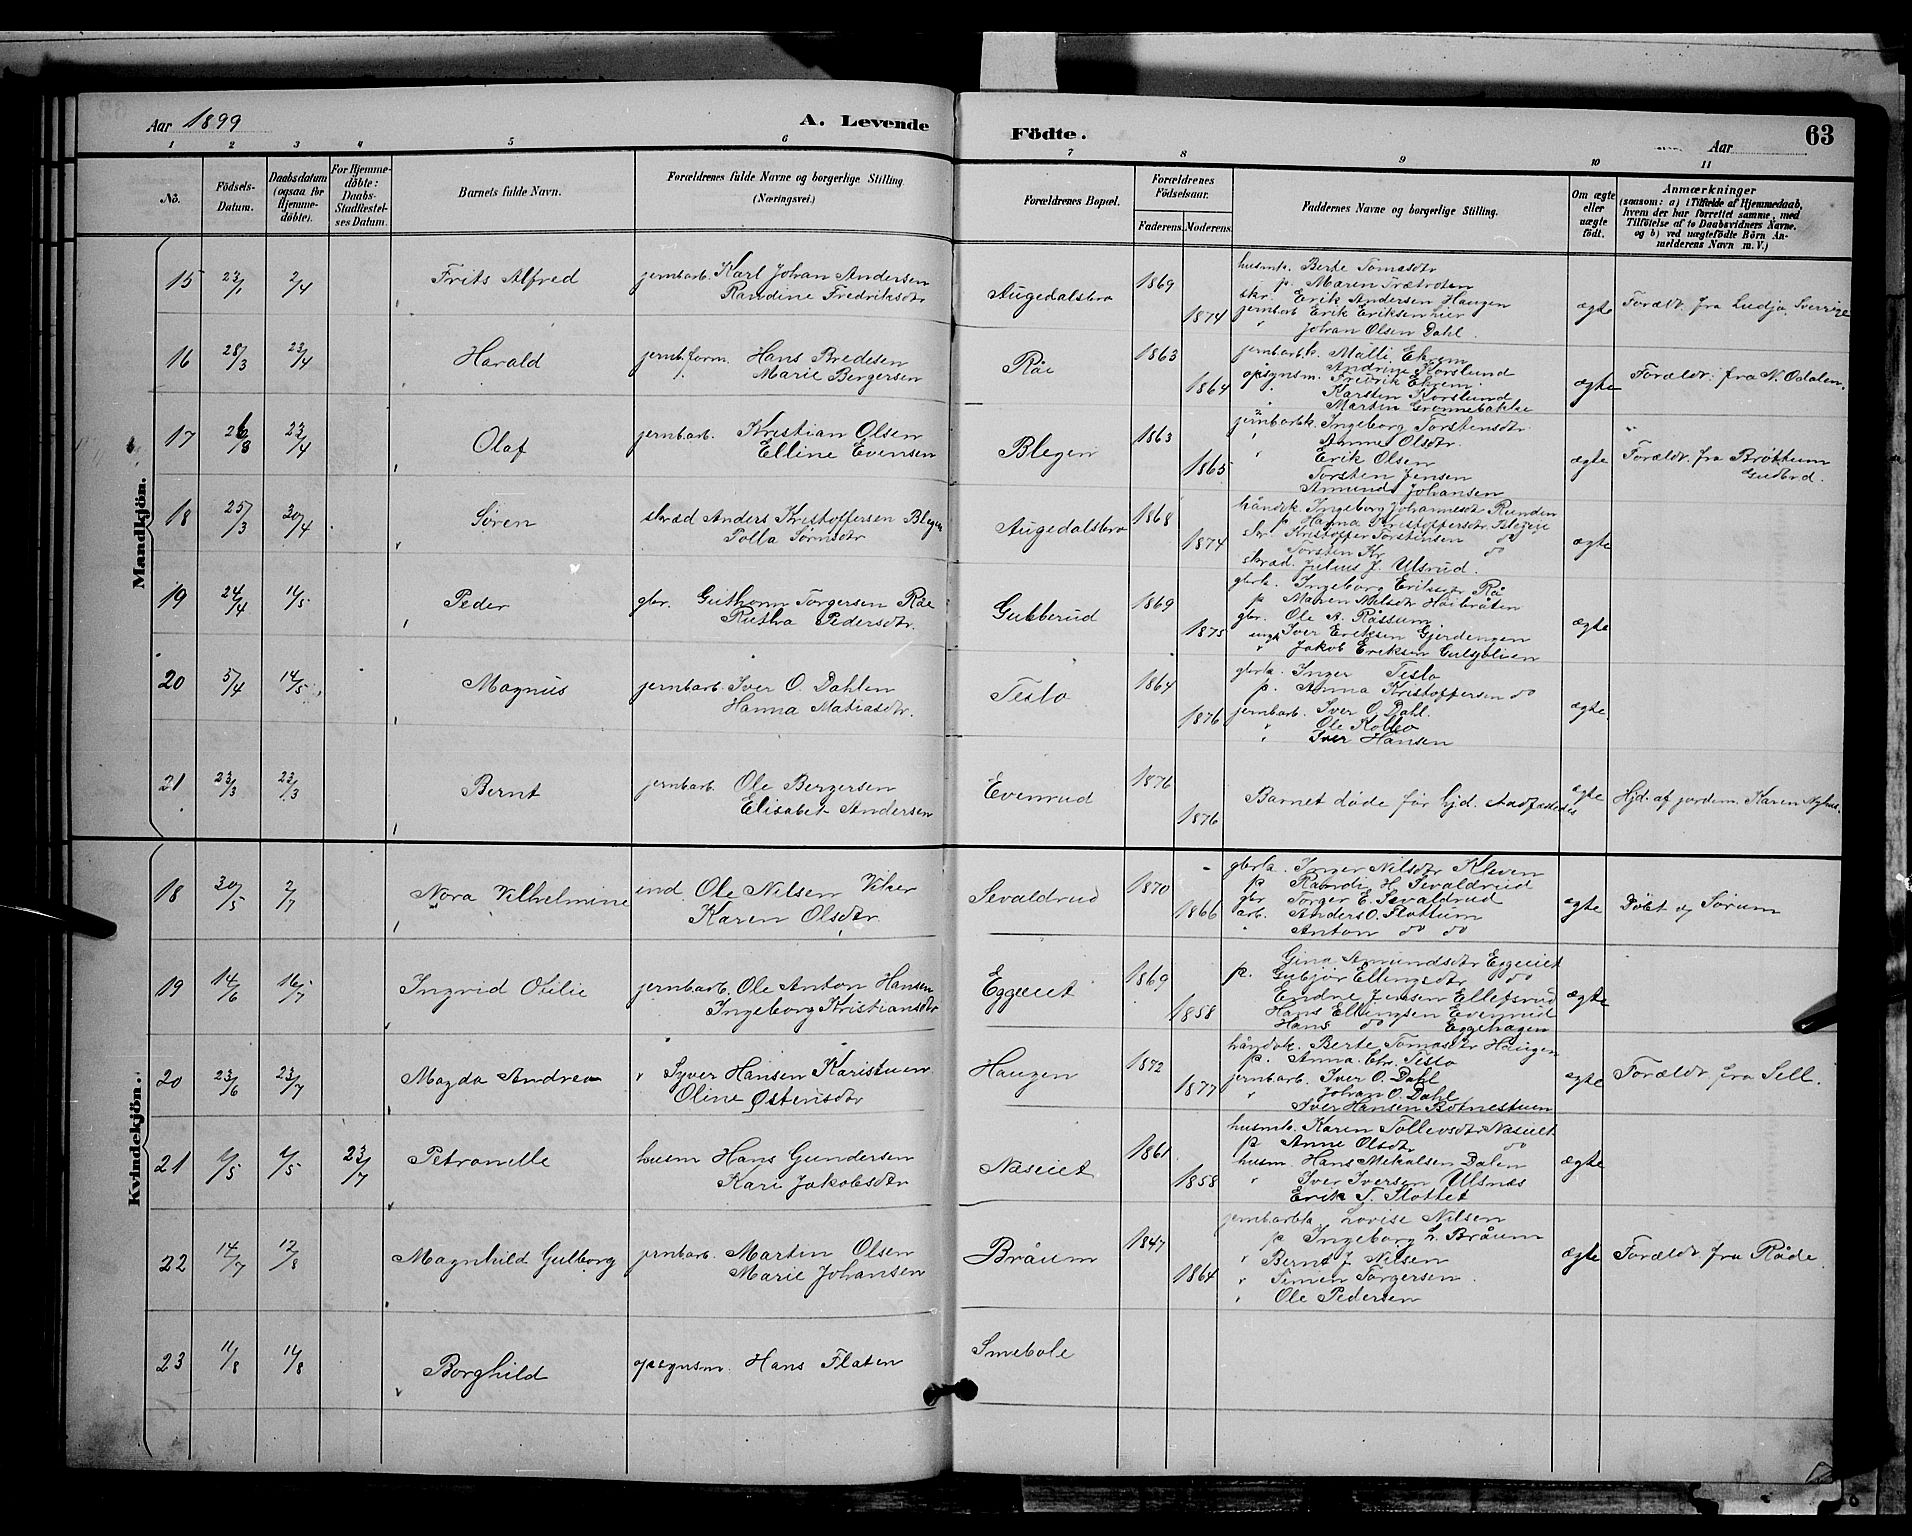 Aar 1899
A. Levende
Födte.
Aar
63
1 2 3 4 5 6 7 8 9 10 11
No.
Födsels-Datum.
Daabsdatum (ogsaa for Hjemme-döbte).
For Hjemme-döbte: Daabs-Stadfæstel-ses Datum.
Barnets fulde Navn.
Forældrenes fulde Navne og borgerlige Stilling. (Næringsvei.)
Forældrenes Bopæl.
Forældrenes Födselsaar.
Faderens. Moderens.
Faddernes Navne og borgerlige Stilling.
Om ægte eller uægte födt.
Anmærkninger
(saasom: a) i Tilfælde af Hjemmedaab, hvem der har forrettet samme, med Tilföielse af to Daabsvidners Navne. og b) ved uægtefödte Börn An-melderens Navn m. V.)
Mandkjön.
15 23/1 2/4 Frits Alfred jernbarb. Karl Johan Andersen
Randine Fredriksdtr
Augedalsbro 1869 1874
husmk. Berte Tomasdtr
p. Maren Trætroten
skr. Erik Andersen Haugen
jernbarb Erik Eriksen Lier
" Johan Olsen Dahl
ægte Forældr. fra Sverige
16 28/3 23/4 Harald jernb.form. Hans Bredesen
Marie Bergersen
Råe 1863 1864
jernbarbk. Malli Ekrem
Andrine Korslund
opsynsm. Fredrik Ekrem
Karsten Korslund
Martin Grønnebakke
ægte Forældr. fra N. Odalen.
17 23/4 Olaf jernbarb. Kristian Olsen
Elline Evensen
Blegen 1863 1865
jernbarbk. Ingeborg Torstensdtr
" Anne Olsdtr.
" Erik Olsen
Torsten Jensen
Amund Johansen
ægte Forældr. fra Brøttum
Gudbrd.
18 25/3 30/4 Søren skræd Anders Kristoffersen Blegen
Polla Sørnsdtr
Augedalsbro 1868 1874
håndvk. Ingeborg Johannesdt Runden
p. Hanna Kristoffersdtr
skr. Kristoffer Torstensen do
Torsten Kr. do
skræd. Julius J. Ulsrud.
ægte
19 24/4 11/5 Peder gbr. Guthorm Torgersen Råe
Rutha Pedersdtr.
Gubberud 1869 1875
gbrk. Ingeborg Eriksdtr Rå
p. Maren Nilsdtr Høibråten
gbr. Ole A. Råssum.
ungk Iver Eriksen Gjerdengen
" Jakob Eriksen Gulsjølien
ægte
20 5/4 14/5 Magnus jernbarb. Iver O. Dahlen
Hanna Matiasdtr.
Teslo 1864 1876
gbrk. Inger Teslo
p. Anna Kristoffersen do
jernbarb. Iver O. Dahl.
" Ole Kolbo
" Iver Hansen
ægte.
21 23/3 23/3 Bernt jernbarb. Ole Bergersen
Elisabet Andersen
Evenrud 1876 1876
Barnet døde før hjd. stadfæstedes
ægte Hjd. af jordem. Karen Nyhus.
Kvindekjön.
18 30/5 2/7 Nora Vilhelmine ind. Ole Nilsen Viker
Karen Olsdtr.
Sevaldrud 1870 1866
gbrk. Inger Nilsdtr Kleven
p. Randi H. Sevaldrud
gbr Torger E. Sevaldrud
arb. Anders O. Flottum
" Anton do do
ægte Døbt i Sørum
19 14/6 16/7 Ingrid Otilie jernbarb. Ole Anton Hansen
Ingeborg Kristiansdtr
Eggeiet 1869 1858
Gina Amundsdtr Eggeiet
p. Gubjør Ellingsdtr do
Endre Jensen Ellefsrud
Hans Ellingsen Evenrud
Hans do Eggehagen
ægte
20 23/6 23/7 Magda Andrea " Syver Hansen Karistuen
Oline Østensdtr
Haugen 1872 1877
håndvk. Berte Tomasdtr Haugen
p. Anna Chr. Teslo
jernbarb. Iver O. Dahl
" Johan O. Dahl
Iver Hansen Botnestuen
ægte Forældr. fra Sell.
21 1/5 1/5 23/7 Petronelle husm Hans Gundersen
Kari Jakobsdtr
Næseiet 1861 1858
husmk. Karen Tollevsdtr Næseiet
p Anne Olsdtr do
husm. Hans Mikalsen Dalen
" Iver Iversen Ulsnæs
Erik T. Slottet
ægte
22 14/7 12/8 Magnhild Gulborg jernbarb. Martin Olsen
Marie Johansen
Bråum 1847 1864
jernbarbk Lovise Nilsen
p Ingeborg L. Bråum
" Bernt J Nilsen
" Simen Torgersen
" Ole Pedersen
ægte Forældr. fra Råde.
23 11/8 14/8 Borghild opsynsm. Hans Flaten
Smebøle